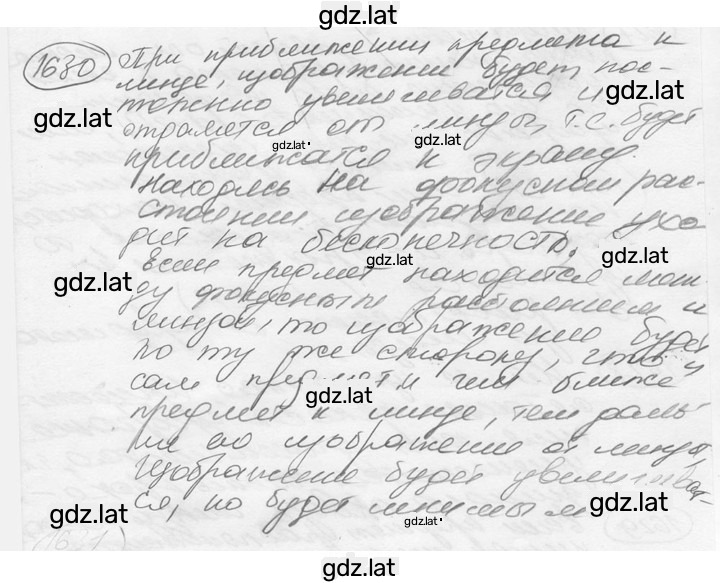 gdz.lat
1630 При приближении предмета к
линзе, изображение будет пос-
тоянно увеличиваться и gdz.lat
gdz.lat
отдаляться от линзы, т.е. будет
gdz.lat gdz.lat
приближаться к экрану.
Находясь на фокусном рас-
стоянии изображение ухо
дит на бесконечность.
gdz.lat gdz.lat
Если предмет находится меж
gdz.lat
ду фокусным расстоянием и
линзой, то изображение будет
по ту же сторону, что и
сам предмет и чем ближе
gdz.lat
предмет к линзе, тем даль
ше его изображение от линзы
Изображение будет увеличиват-
ся, но будет мнимым
gdz.lat gdz.lat gdz.lat
gdz.lat